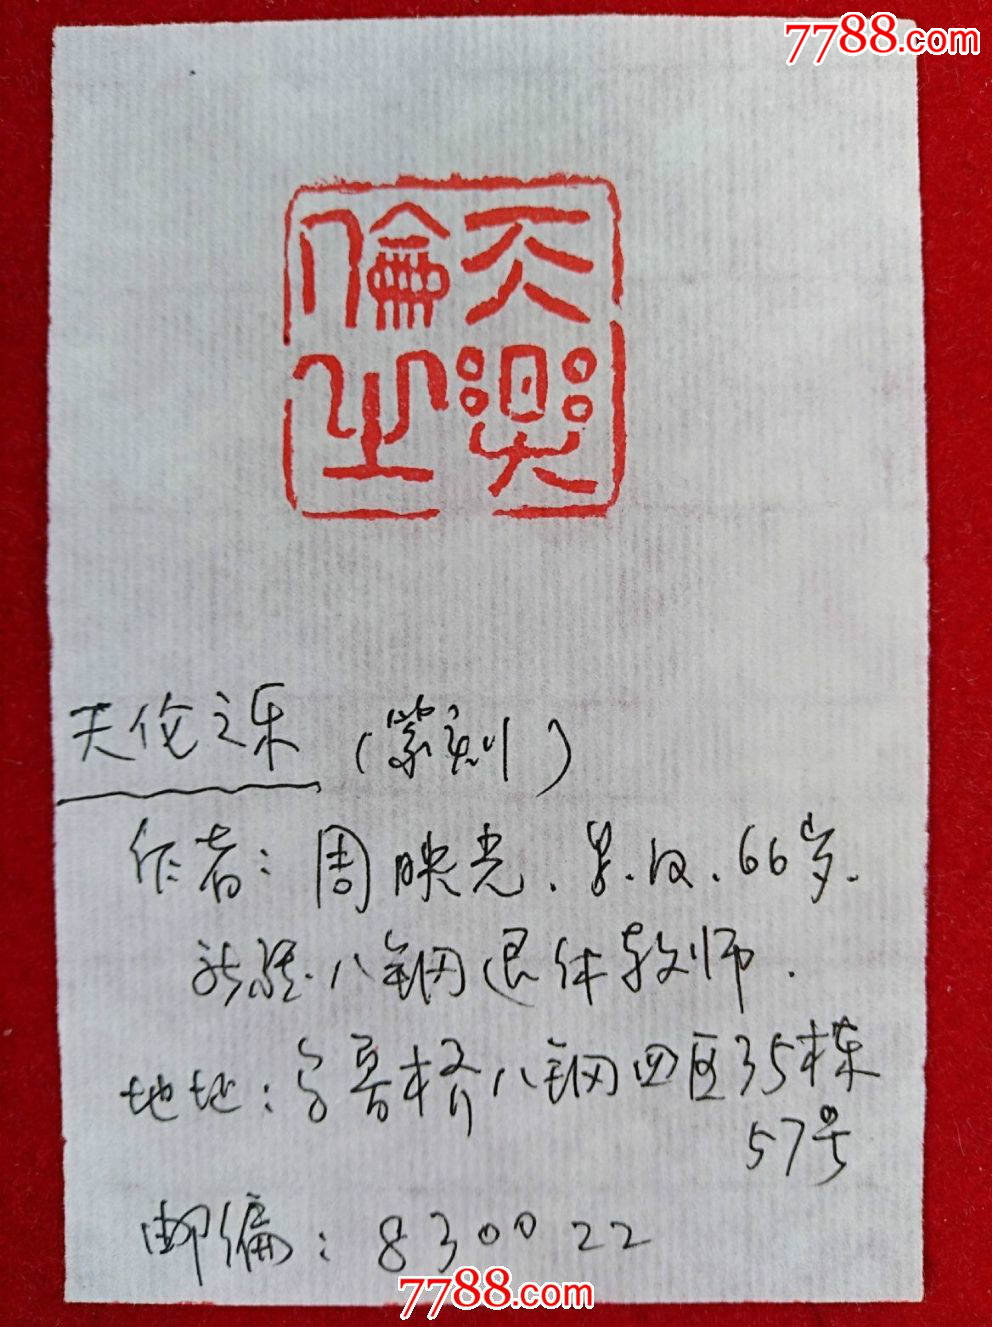 7788.com
天倫之樂
天伦之乐（篆刻）
作者：周映光．男．汉．66岁．
新疆．八钢退休教师．
地址：乌鲁木齐八钢四区35栋
57号
邮编：830022
7788.com